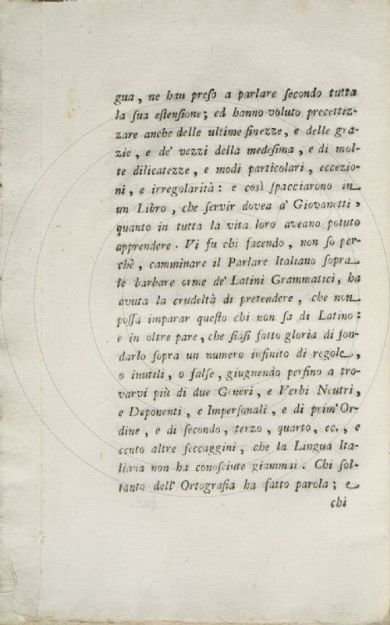 gua, ne han preso a parlare secondo tutta
la sua estensione; ed hanno voluto precettiz-
zare anche delle ultime finezze, e delle gra-
zie, e de' vezzi della medesima, e di mol-
te dilicatezze, e modi particolari, eccezio-
ni, e irregolarità: e così spacciarono in
un Libro, che servir dovea a' Giovanetti,
quanto in tutta la vita loro aveano potuto
apprendere. Vi fu chi facendo, non so per-
chè, camminare il Parlare Italiano sopra
le barbare orme de' Latini Grammatici, ha
avuta la crudeltà di pretendere, che non
possa imparar questo chi non sa di Latino:
e in oltre pare, che siasi fatto gloria di fon-
darlo sopra un numero infinito di regole,
o inutili, o false, giugnendo perfino a tro-
varvi più di due Generi, e Verbi Neutri,
e Deponenti, e Impersonali, e di prim' Or-
dine, e di secondo, terzo, quarto, ec., e
cento altre seccaggini, che la Lingua Ita-
liana non ha conosciute giammai. Chi sol-
tanto dell' Ortografia ha fatto parola; e
chi